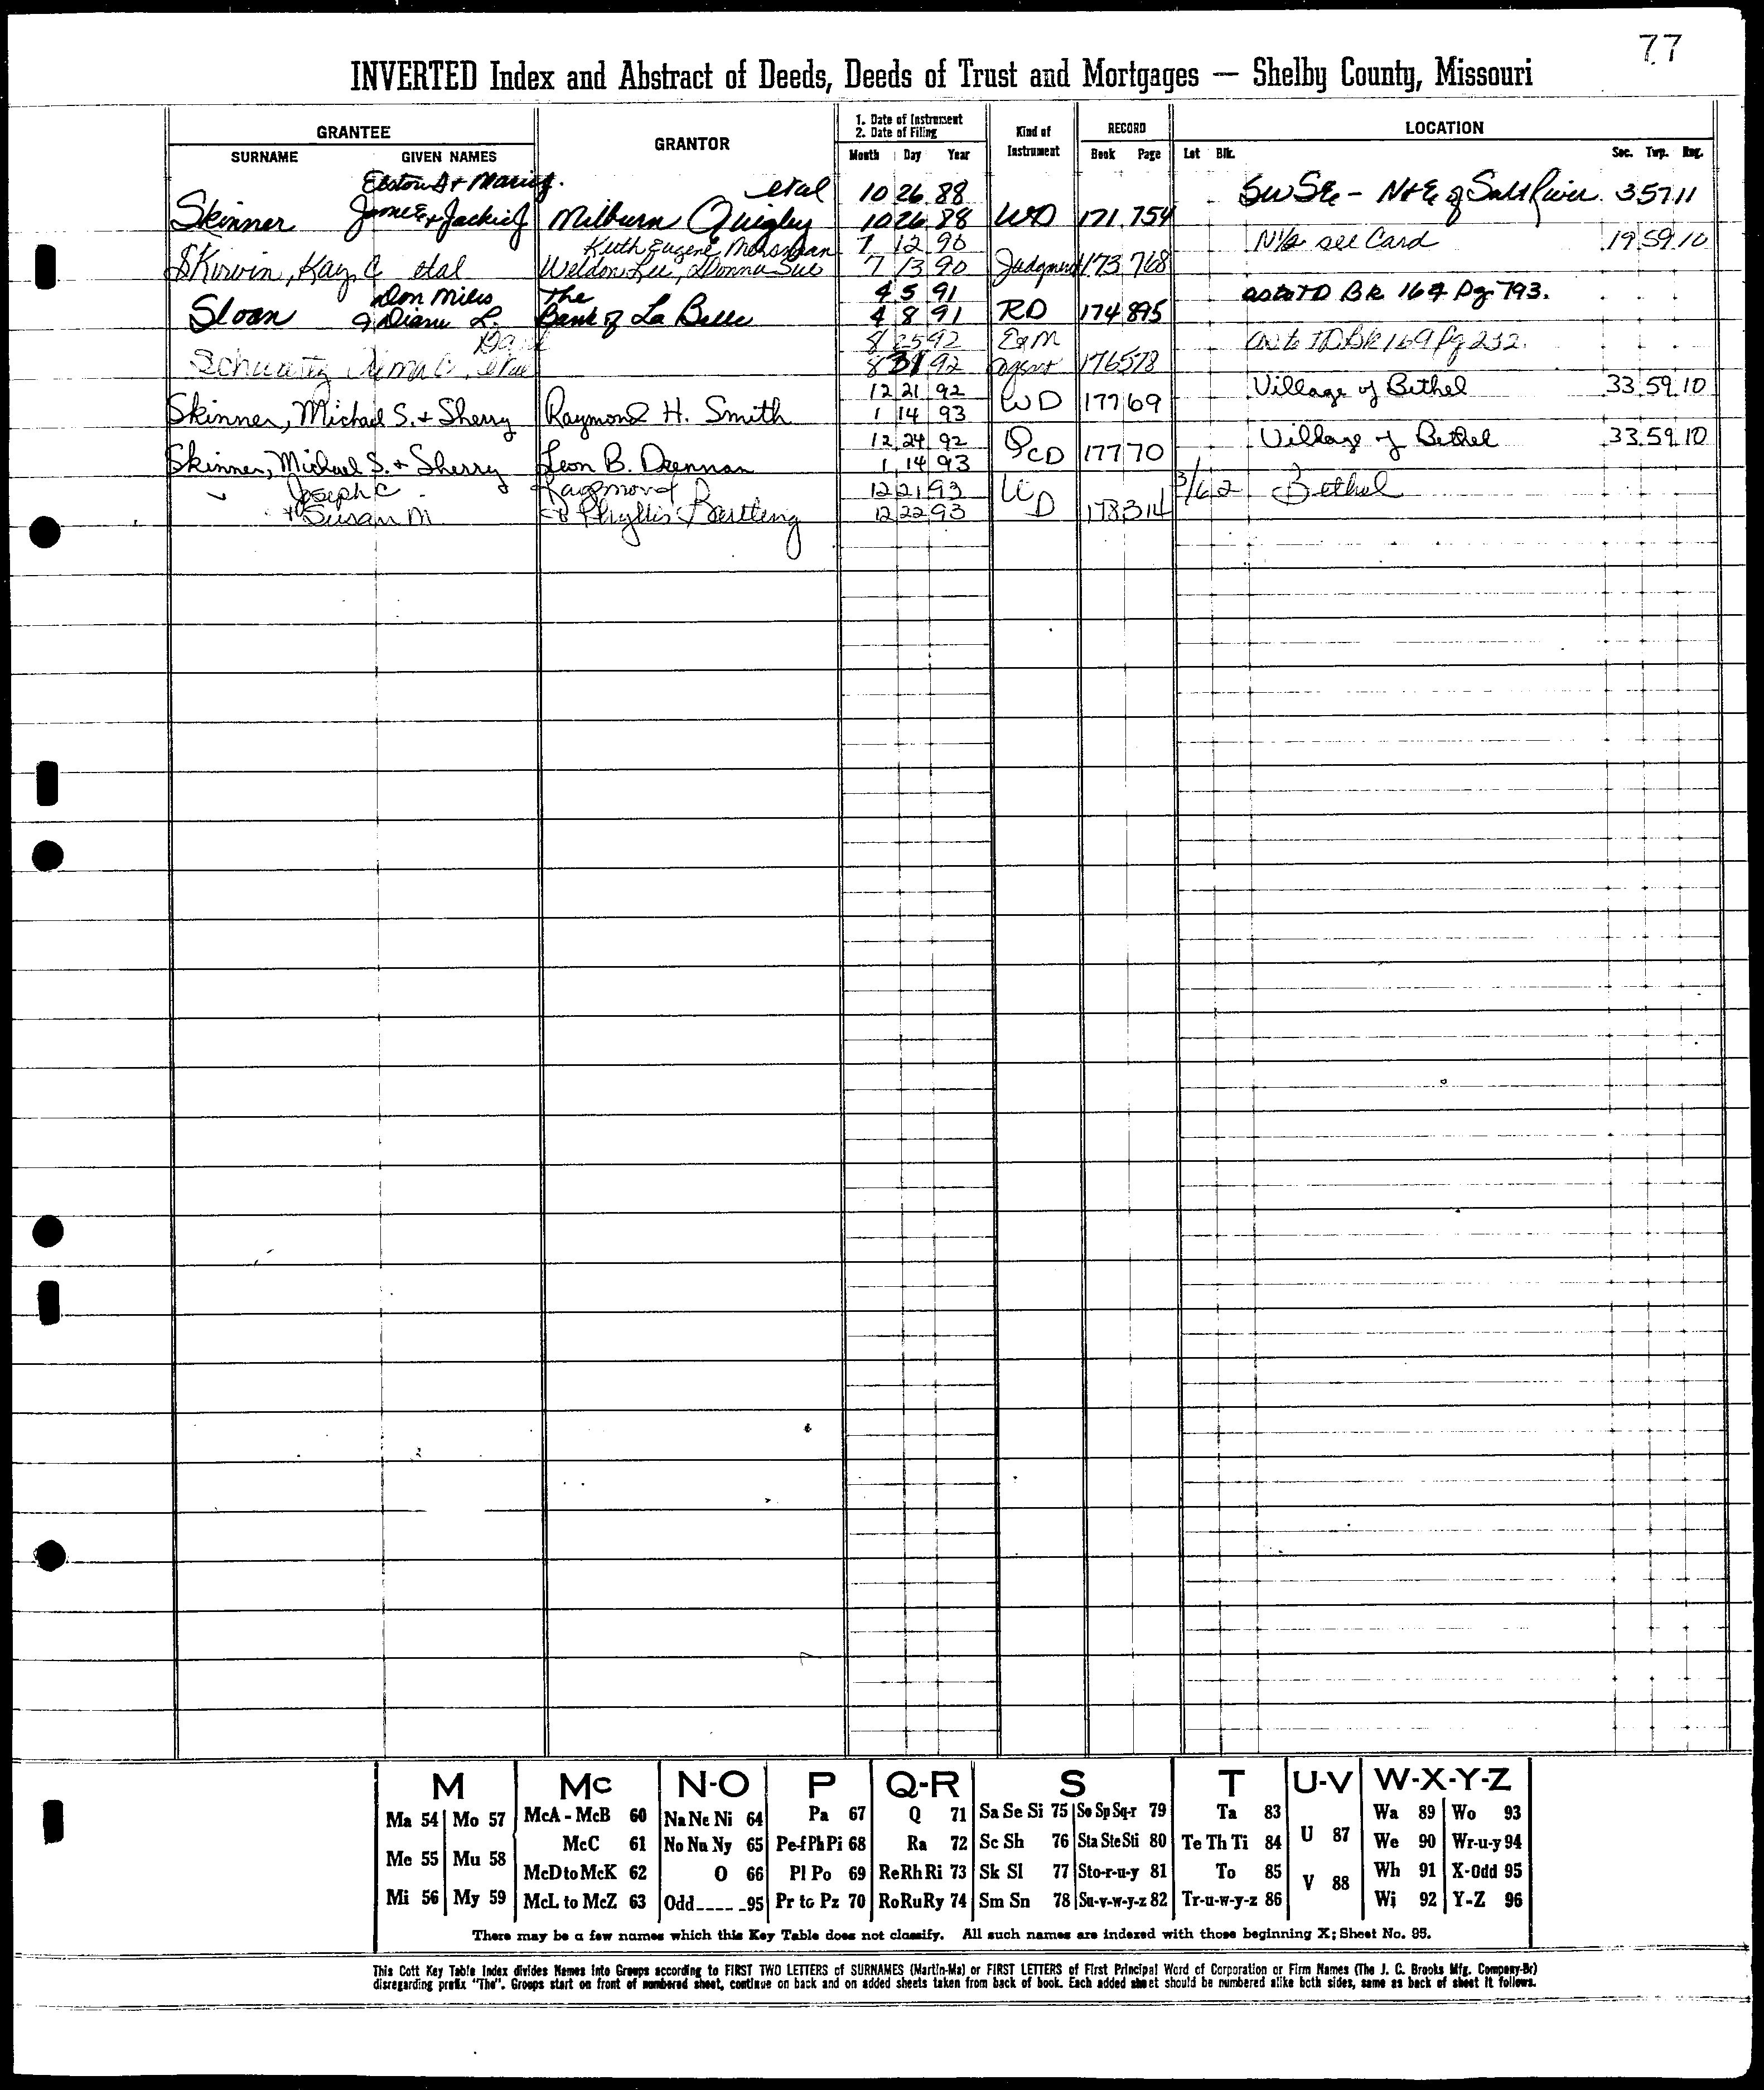 77
INVERTED Index and Abstract of Deeds, Deeds of Trust and Mortgages — Shelby County, Missouri
GRANTEE GRANTOR 1. Date of Instrument 2. Date of Filing Kind of Instrument RECORD LOCATION
SURNAME GIVEN NAMES Month Day Year Book Page Lot Blk. Sec. Twp. Rng.
Elston A + Marie J. etal 10 26 88 SW SE - N+E of Salt River 3 57 11
Skinner James E + Jackie J Milburn Quigley 10 26 88 WD 171 754
Keith Eugene Morsman 7 12 90 N½ see Card 19 59 10
Skirvin, Kay C etal Weldon Lee, Donna Sue 7 13 90 Judgment 173 768
Don Miles The 4 5 91 as to TD Bk 164 Pg 793.
Sloan & Diane L. Bank of La Belle 4 8 91 RD 174 895
8 25 92 E&M as to TD Bk 169 Pg 232.
Schwartz 8 31 92 Agent 176 578
12 21 92 Village of Bethel 33 59 10
Skinner, Michael S. + Sherry Raymond H. Smith 1 14 93 WD 177 69
12 24 92 Village of Bethel 33 59 10
Skinner, Michael S. + Sherry Leon B. Drennan 1 14 93 QCD 177 70
Joseph C Raymond 12 21 93 3/6 2 Bethel
+ Susan M & Phyllis Bartling 12 22 93 WD 178 314
M Mc N-O P Q-R S T U-V W-X-Y-Z
Ma 54 Mo 57 McA - McB 60 Na Ne Ni 64 Pa 67 Q 71 Sa Se Si 75 So Sp Sq-r 79 Ta 83 U 87 Wa 89 Wo 93
Me 55 Mu 58 McC 61 No Nu Ny 65 Pe-f Ph Pi 68 Ra 72 Sc Sh 76 Sta Ste Sti 80 Te Th Ti 84 V 88 We 90 Wr-u-y 94
McD to McK 62 O 66 Pl Po 69 Re Rh Ri 73 Sk Sl 77 Sto-r-u-y 81 To 85 Wh 91 X-Odd 95
Mi 56 My 59 McL to McZ 63 Odd_____95 Pr to Pz 70 Ro Ru Ry 74 Sm Sn 78 Su-v-w-y-z 82 Tr-u-w-y-z 86 Wi 92 Y-Z 96
There may be a few names which this Key Table does not classify. All such names are indexed with those beginning X; Sheet No. 95.
This Cott Key Table Index divides Names into Groups according to FIRST TWO LETTERS of SURNAMES (Martin-Ma) or FIRST LETTERS of First Principal Word of Corporation or Firm Names (The J. C. Brooks Mfg. Company-Br)
disregarding prefix "The". Groups start on front of numbered sheet, continue on back and on added sheets taken from back of book. Each added sheet should be numbered alike both sides, same as back of sheet it follows.